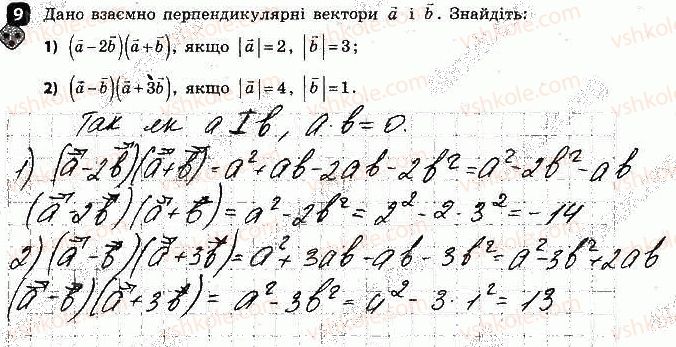 9 Дано взаємно перпендикулярні вектори a⃗ і b⃗. Знайдіть:
1) (a⃗−2b⃗)(a⃗+b⃗), якщо |a⃗|=2, |b⃗|=3;
2) (a⃗−b⃗)(a⃗+3b⃗), якщо |a⃗|=4, |b⃗|=1.
Так як a⊥b, a·b=0.
1) (a⃗−2b⃗)(a⃗+b⃗)=a²+ab−2ab−2b²=a²−2b²−ab
(a⃗−2b⃗)(a⃗+b⃗)=a²−2b²=2²−2·3²=−14
2) (a⃗−b⃗)(a⃗+3b⃗)=a²+3ab−ab−3b²=a²−3b²+2ab
(a⃗−b⃗)(a⃗+3b⃗)=a²−3b²=4²−3·1²=13